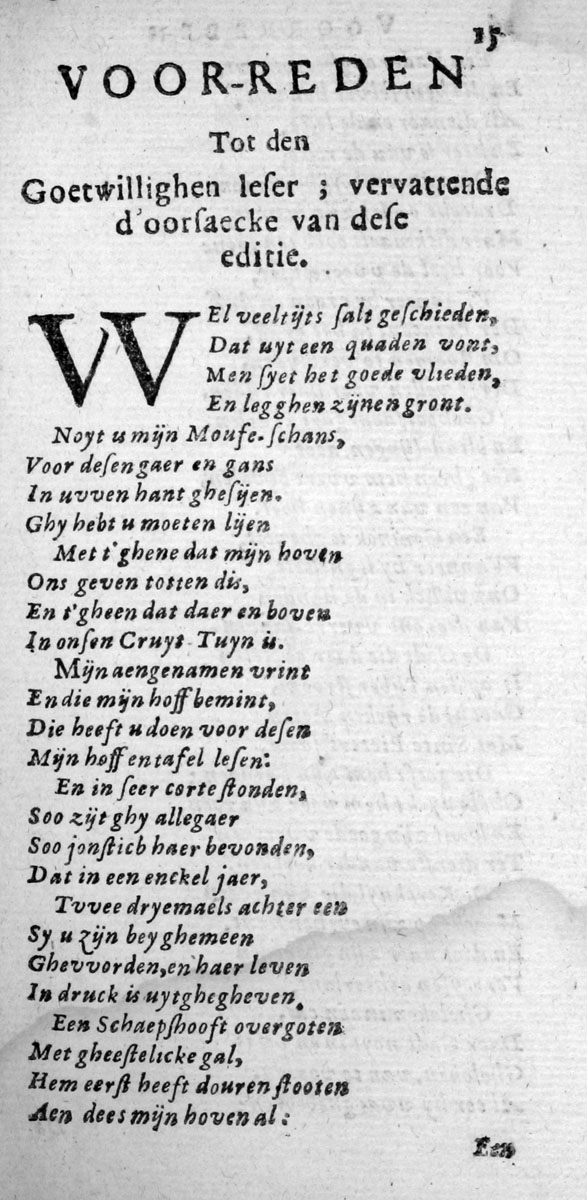 15
VOOR-REDEN
Tot den
Goetwillighen leser ; vervattende
d'oorsaecke van dese
editie.
WEl veeltijts salt geschieden,
Dat uyt een quaden vont,
Men syet het goede vlieden,
En legghen zijnen gront.
Noyt u mijn Moufe-schans,
Voor desen gaer en gans
In uvven hant ghesijen.
Ghy hebt u moeten lijen
Met t'ghene dat mijn hoven
Ons geven totten dis,
En t'gheen dat daer en boven
In onsen Cruyt-Tuyn is.
Mijn aengenamen vrint
En die mijn hoff bemint,
Die heeft u doen voor desen
Mijn hoff en tafel lesen:
En in seer corte stonden,
Soo zijt ghy allegaer
Soo jonstich haer bevonden,
Dat in een enckel jaer,
Tvvee dryemaels achter een
Sy u zijn bey ghemeen
Ghevvorden, en haer leven
In druck is uytghegheven.
Een Schaepshooft overgoten
Met gheestelicke gal,
Hem eerst heeft douren stooten
Aen dees mijn hoven al:
Een